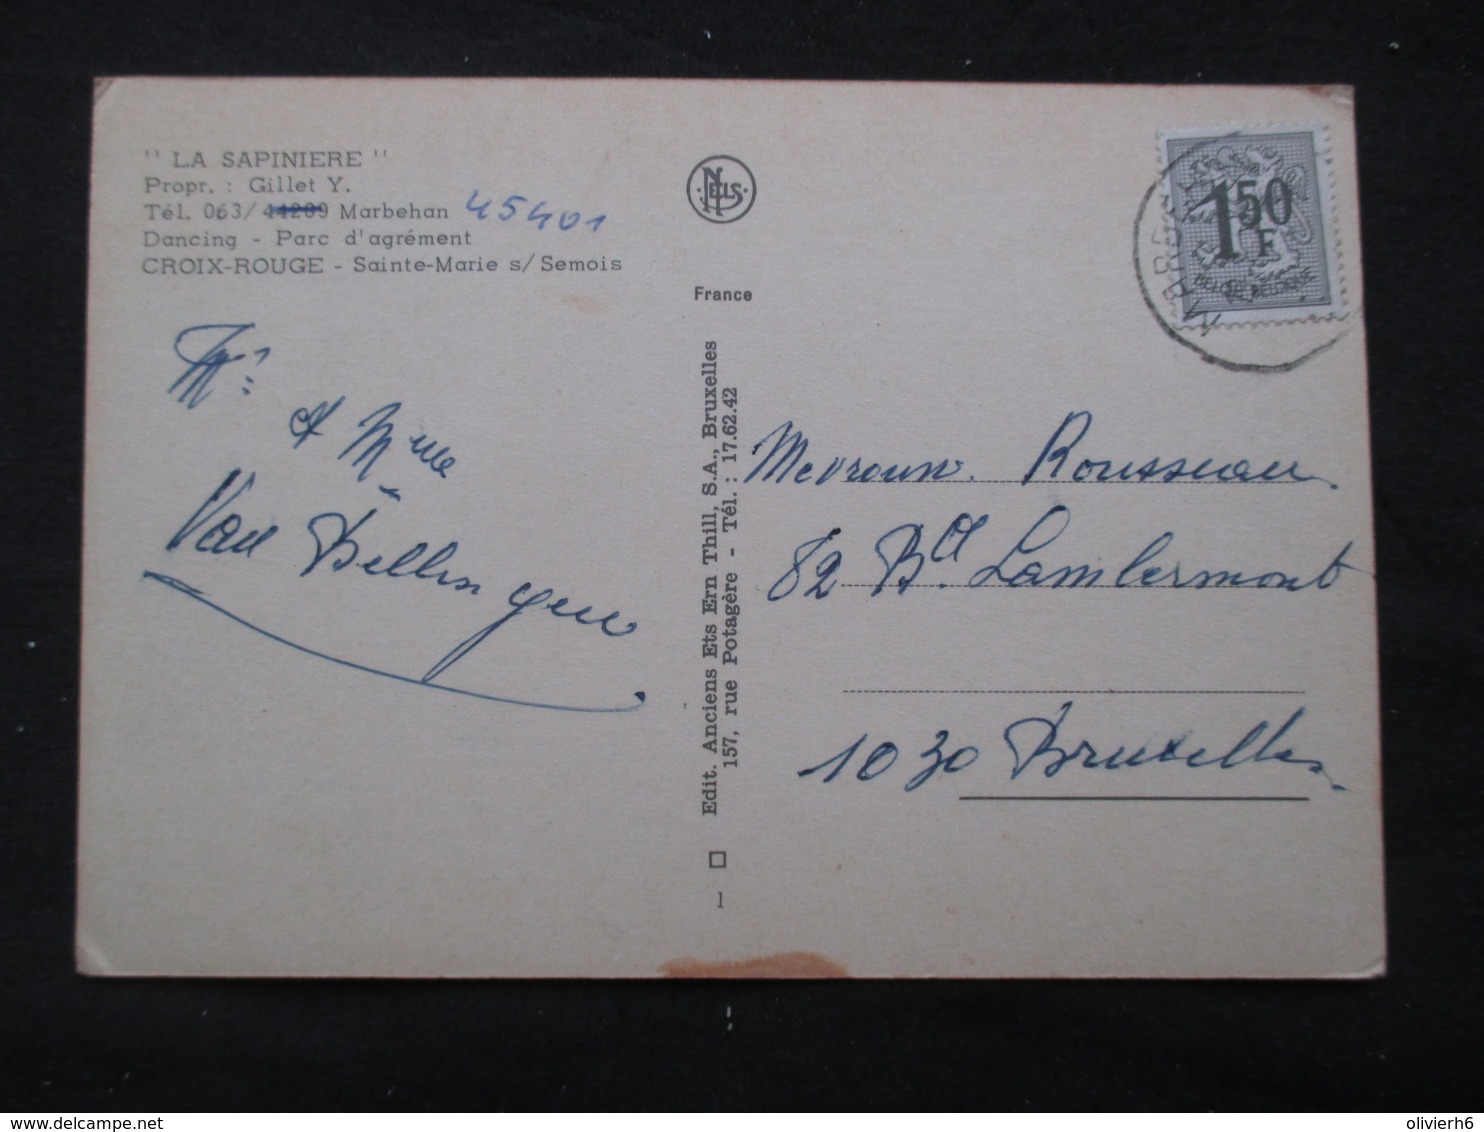 " LA SAPINIERE "
Propr. : Gillet Y.
Tél. 063/44209 Marbehan 45401
Dancing - Parc d'agrément
CROIX-ROUGE - Sainte-Marie s/ Semois
NELS
France
1F50
BELGIE BELGIQUE
Mr
& Mme
Van Bellingen
Edit. Anciens Ets Ern Thill, S.A., Bruxelles
157, rue Potagère - Tél. : 17.62.42
1
Mevrouw. Rousseau.
82 Bd. Lambermont
1030 Bruxelles
delcampe.net
olivierh6